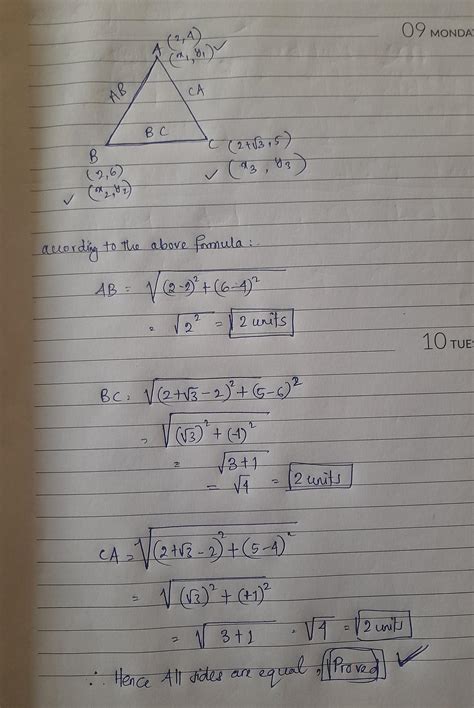 09 MONDA
A (2,4)
(x₁, y₁) ✓
AB
CA
BC
B
C (2+√3, 5)
(2,6)
✓ (x₃, y₃)
✓ (x₂, y₂)
according to the above formula:-
AB = √(2-2)² + (6-4)²
= √2² = 2 units
10 TUE
BC = √(2+√3-2)² + (5-6)²
= √(√3)² + (-1)²
= √3+1
= √4 = 2 units
CA = √(2+√3-2)² + (5-4)²
= √(√3)² + (+1)²
= √3+1 = √4 = 2 units
∴ Hence All sides are equal, Proved ✓